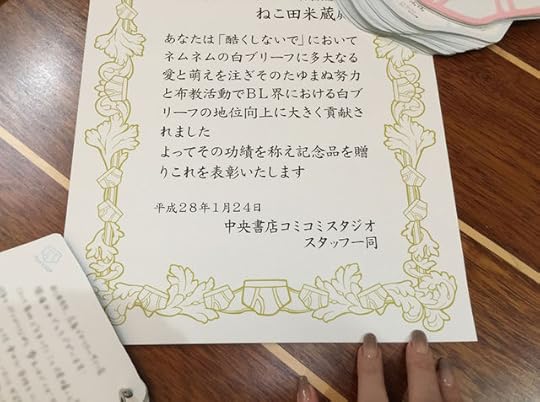 ねこ田米蔵
あなたは「酷くしないで」において
ネムネムの白ブリーフに多大なる
愛と萌えを注ぎそのたゆまぬ努力
と布教活動でBL界における白ブ
リーフの地位向上に大きく貢献さ
れました
よってその功績を称え記念品を贈
りこれを表彰いたします
平成28年1月24日
中央書店コミコミスタジオ
スタッフ一同